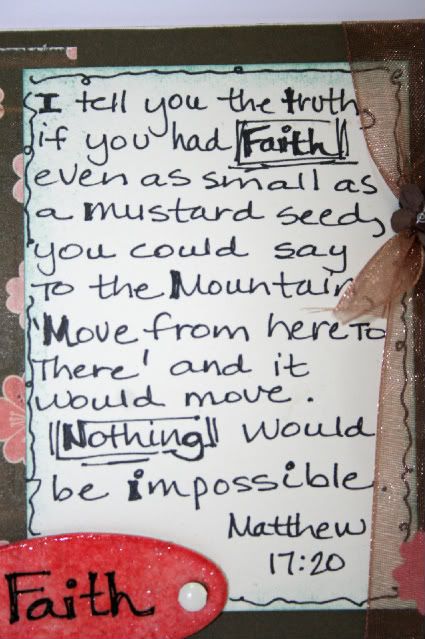 I tell you the truth,
if you had Faith
even as small as
a mustard seed,
you could say
To the Mountain
'Move from here To
There' and it
would move.
Nothing would
be impossible.
Matthew
17:20
Faith